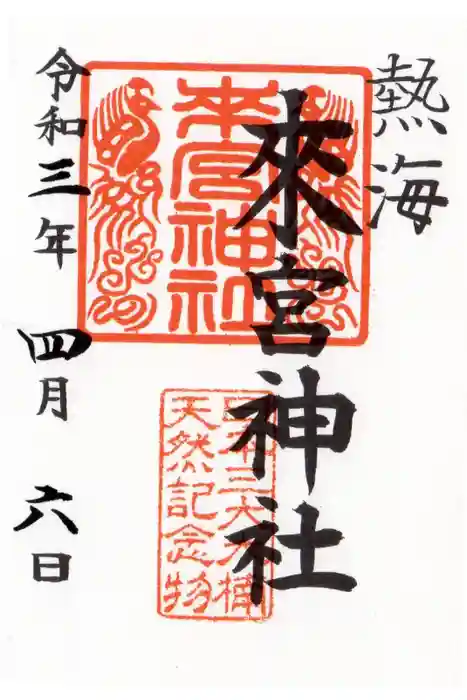 熱海
來宮神社
令和三年 四月 六日
来宮神社
日本三大大楠
天然記念物